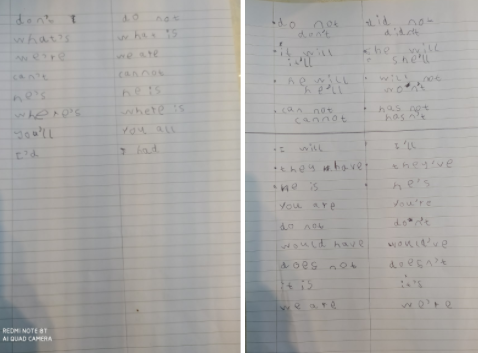 don't do not
what's what is
we're we are
can't cannot
he's he is
where's where is
you'll you all
I'd I had
REDMI NOTE 8T
AI QUAD CAMERA
do not did not
don't didn't
it will she will
it'll she'll
he will will not
he'll won't
can not has not
cannot hasn't
I will I'll
they have they've
he is he's
you are you're
do not don't
would have would've
does not doesn't
it is it's
we are we're